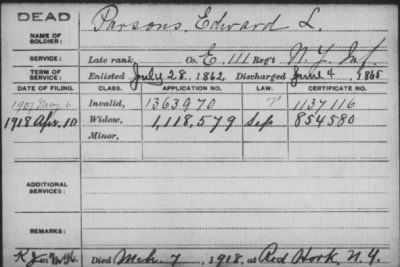 DEAD
NAME OF SOLDIER: Parsons, Edward L.
SERVICE: Late rank, Co. E, 111 Reg't N.Y. Inf.
TERM OF SERVICE: Enlisted July 28, 1862, Discharged June 4, 1865
DATE OF FILING. CLASS. APPLICATION NO. LAW. CERTIFICATE NO.
1907 May 6 Invalid, 1363970 1137116
1918 Apr. 10 Widow, 1,118,579 Sep 854580
Minor,
ADDITIONAL SERVICES:
REMARKS:
Died Mch. 7, 1918, at Red Hook, N.Y.